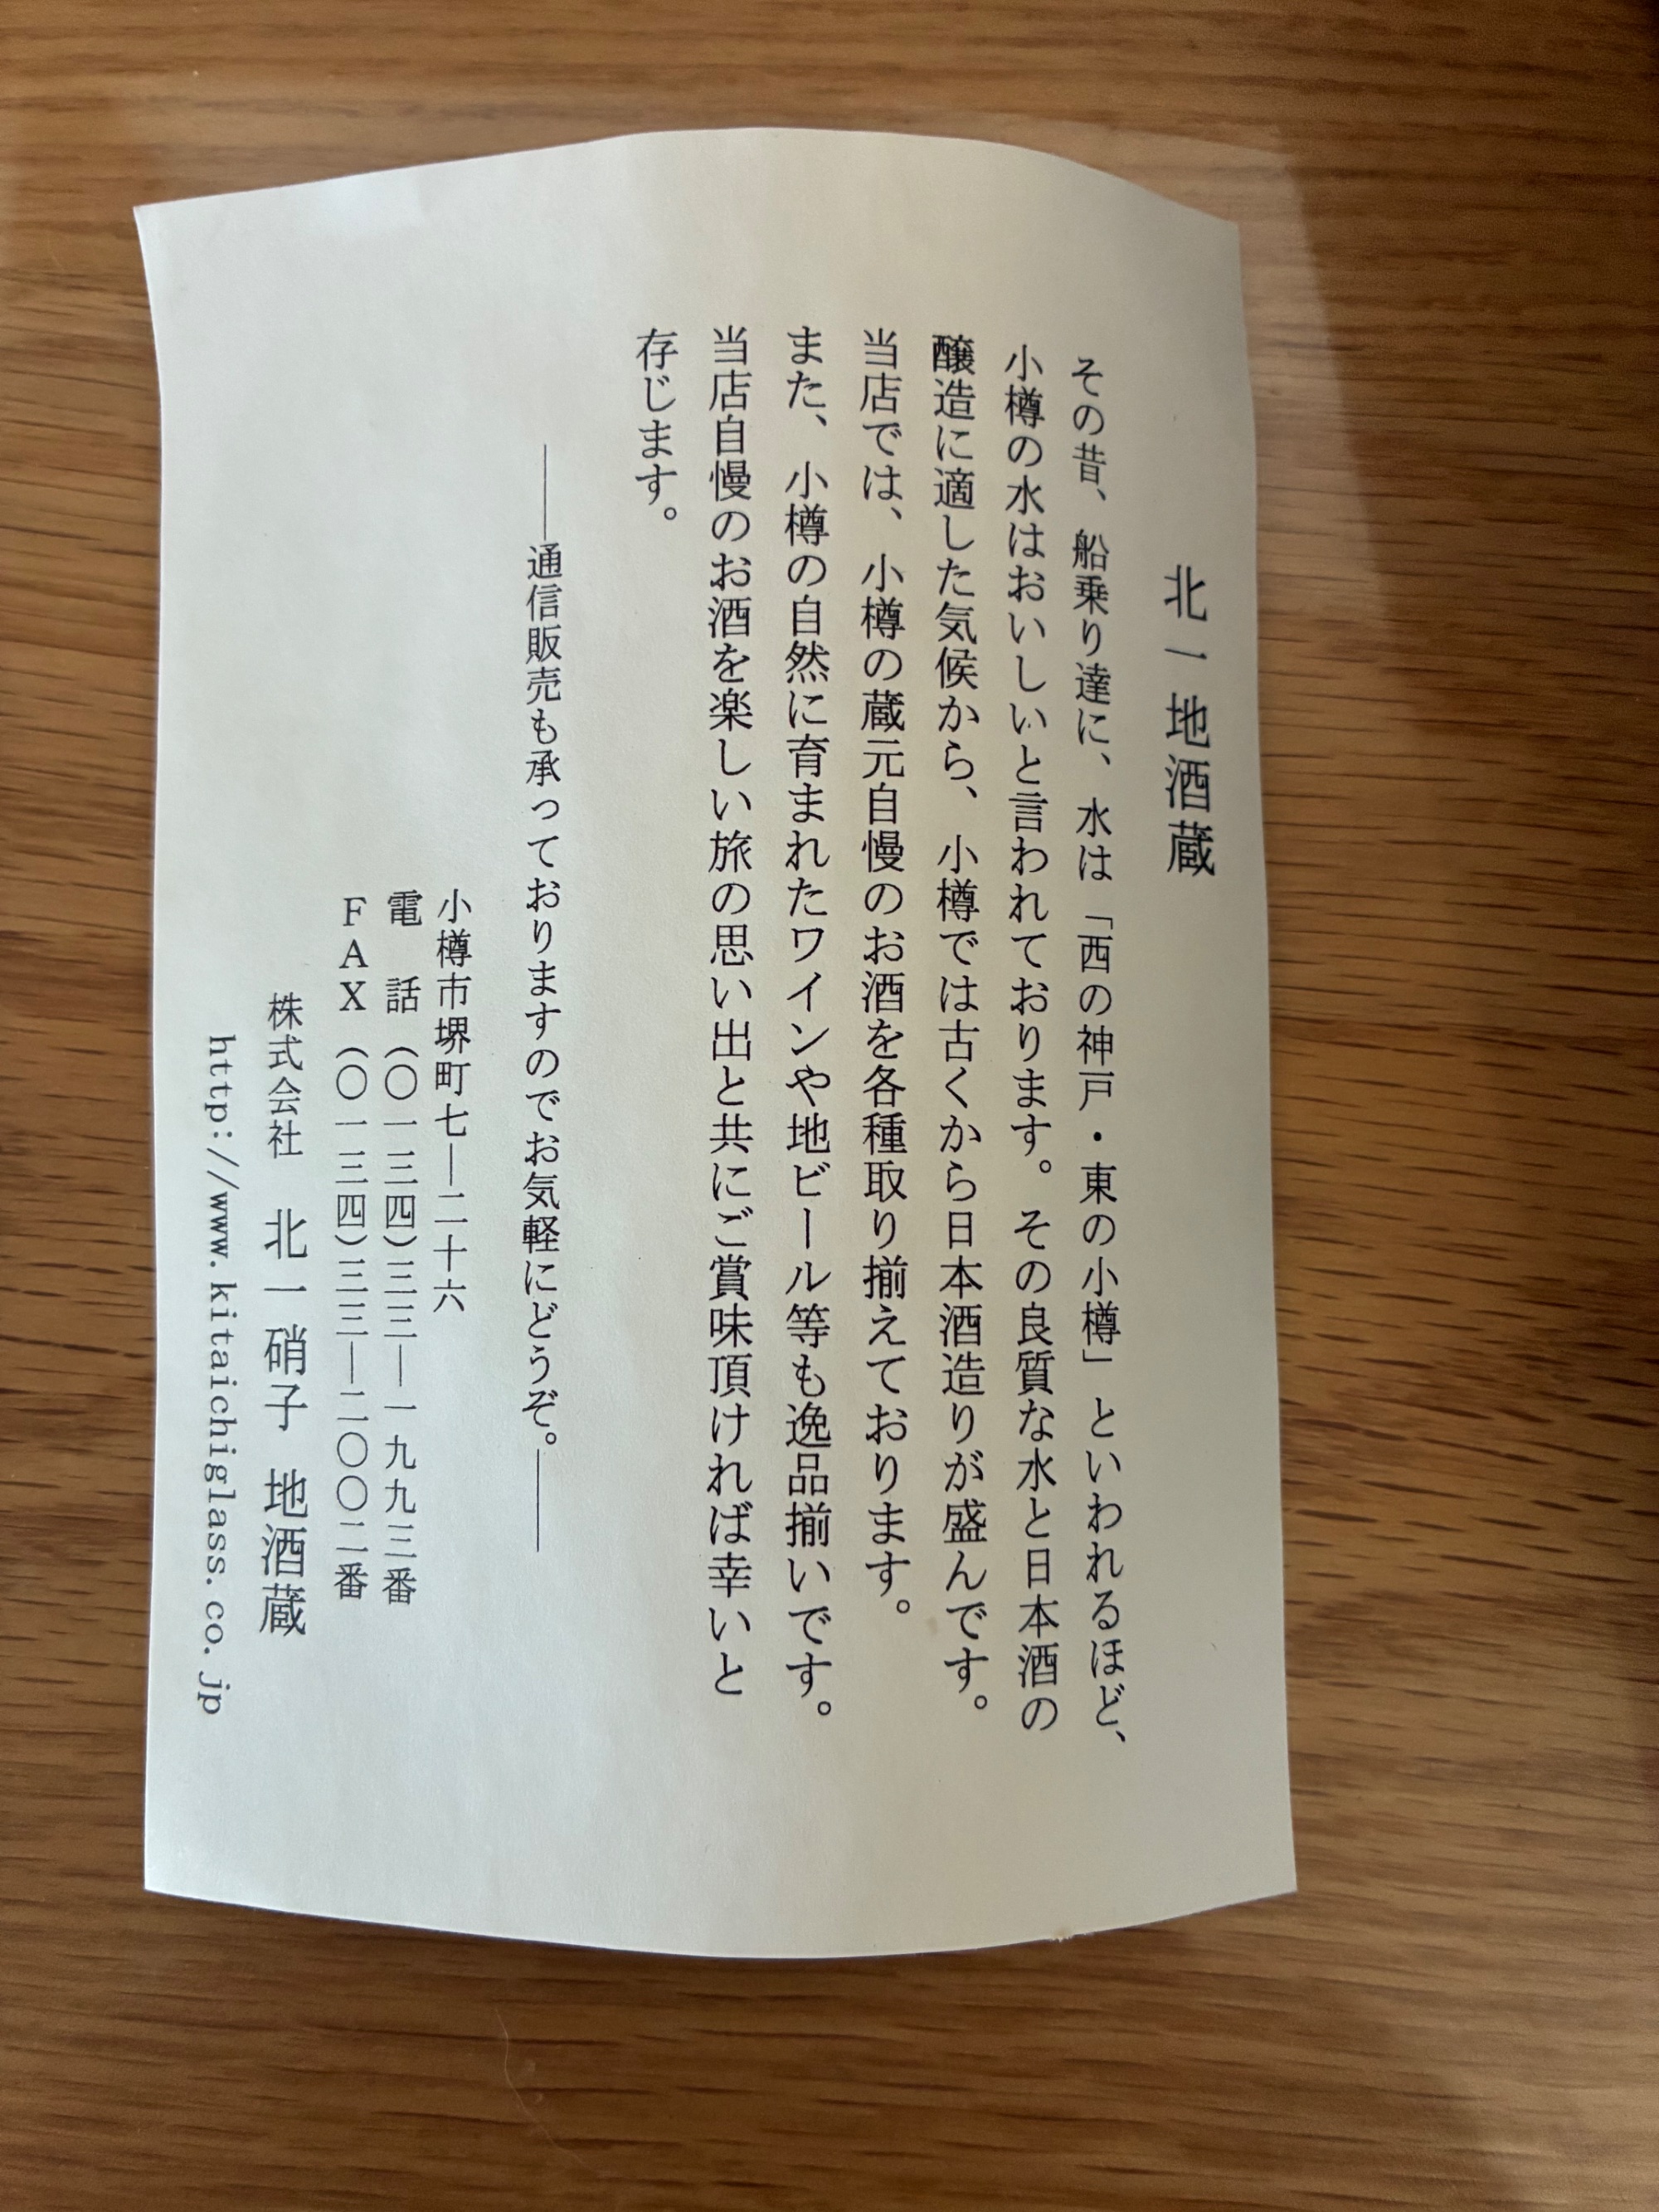 北一地酒蔵
その昔、船乗り達に、水は「西の神戸・東の小樽」といわれるほど、
小樽の水はおいしいと言われております。その良質な水と日本酒の
醸造に適した気候から、小樽では古くから日本酒造りが盛んです。
当店では、小樽の蔵元自慢のお酒を各種取り揃えております。
また、小樽の自然に育まれたワインや地ビール等も逸品揃いです。
当店自慢のお酒を楽しい旅の思い出と共にご賞味頂ければ幸いと
存じます。
――通信販売も承っておりますのでお気軽にどうぞ。――
小樽市堺町七―二十六
電　話（〇一三四）三三―一九九三番
ＦＡＸ（〇一三四）三三―二〇〇二番
株式会社　北一硝子　地酒蔵
http://www.kitaichiglass.co.jp